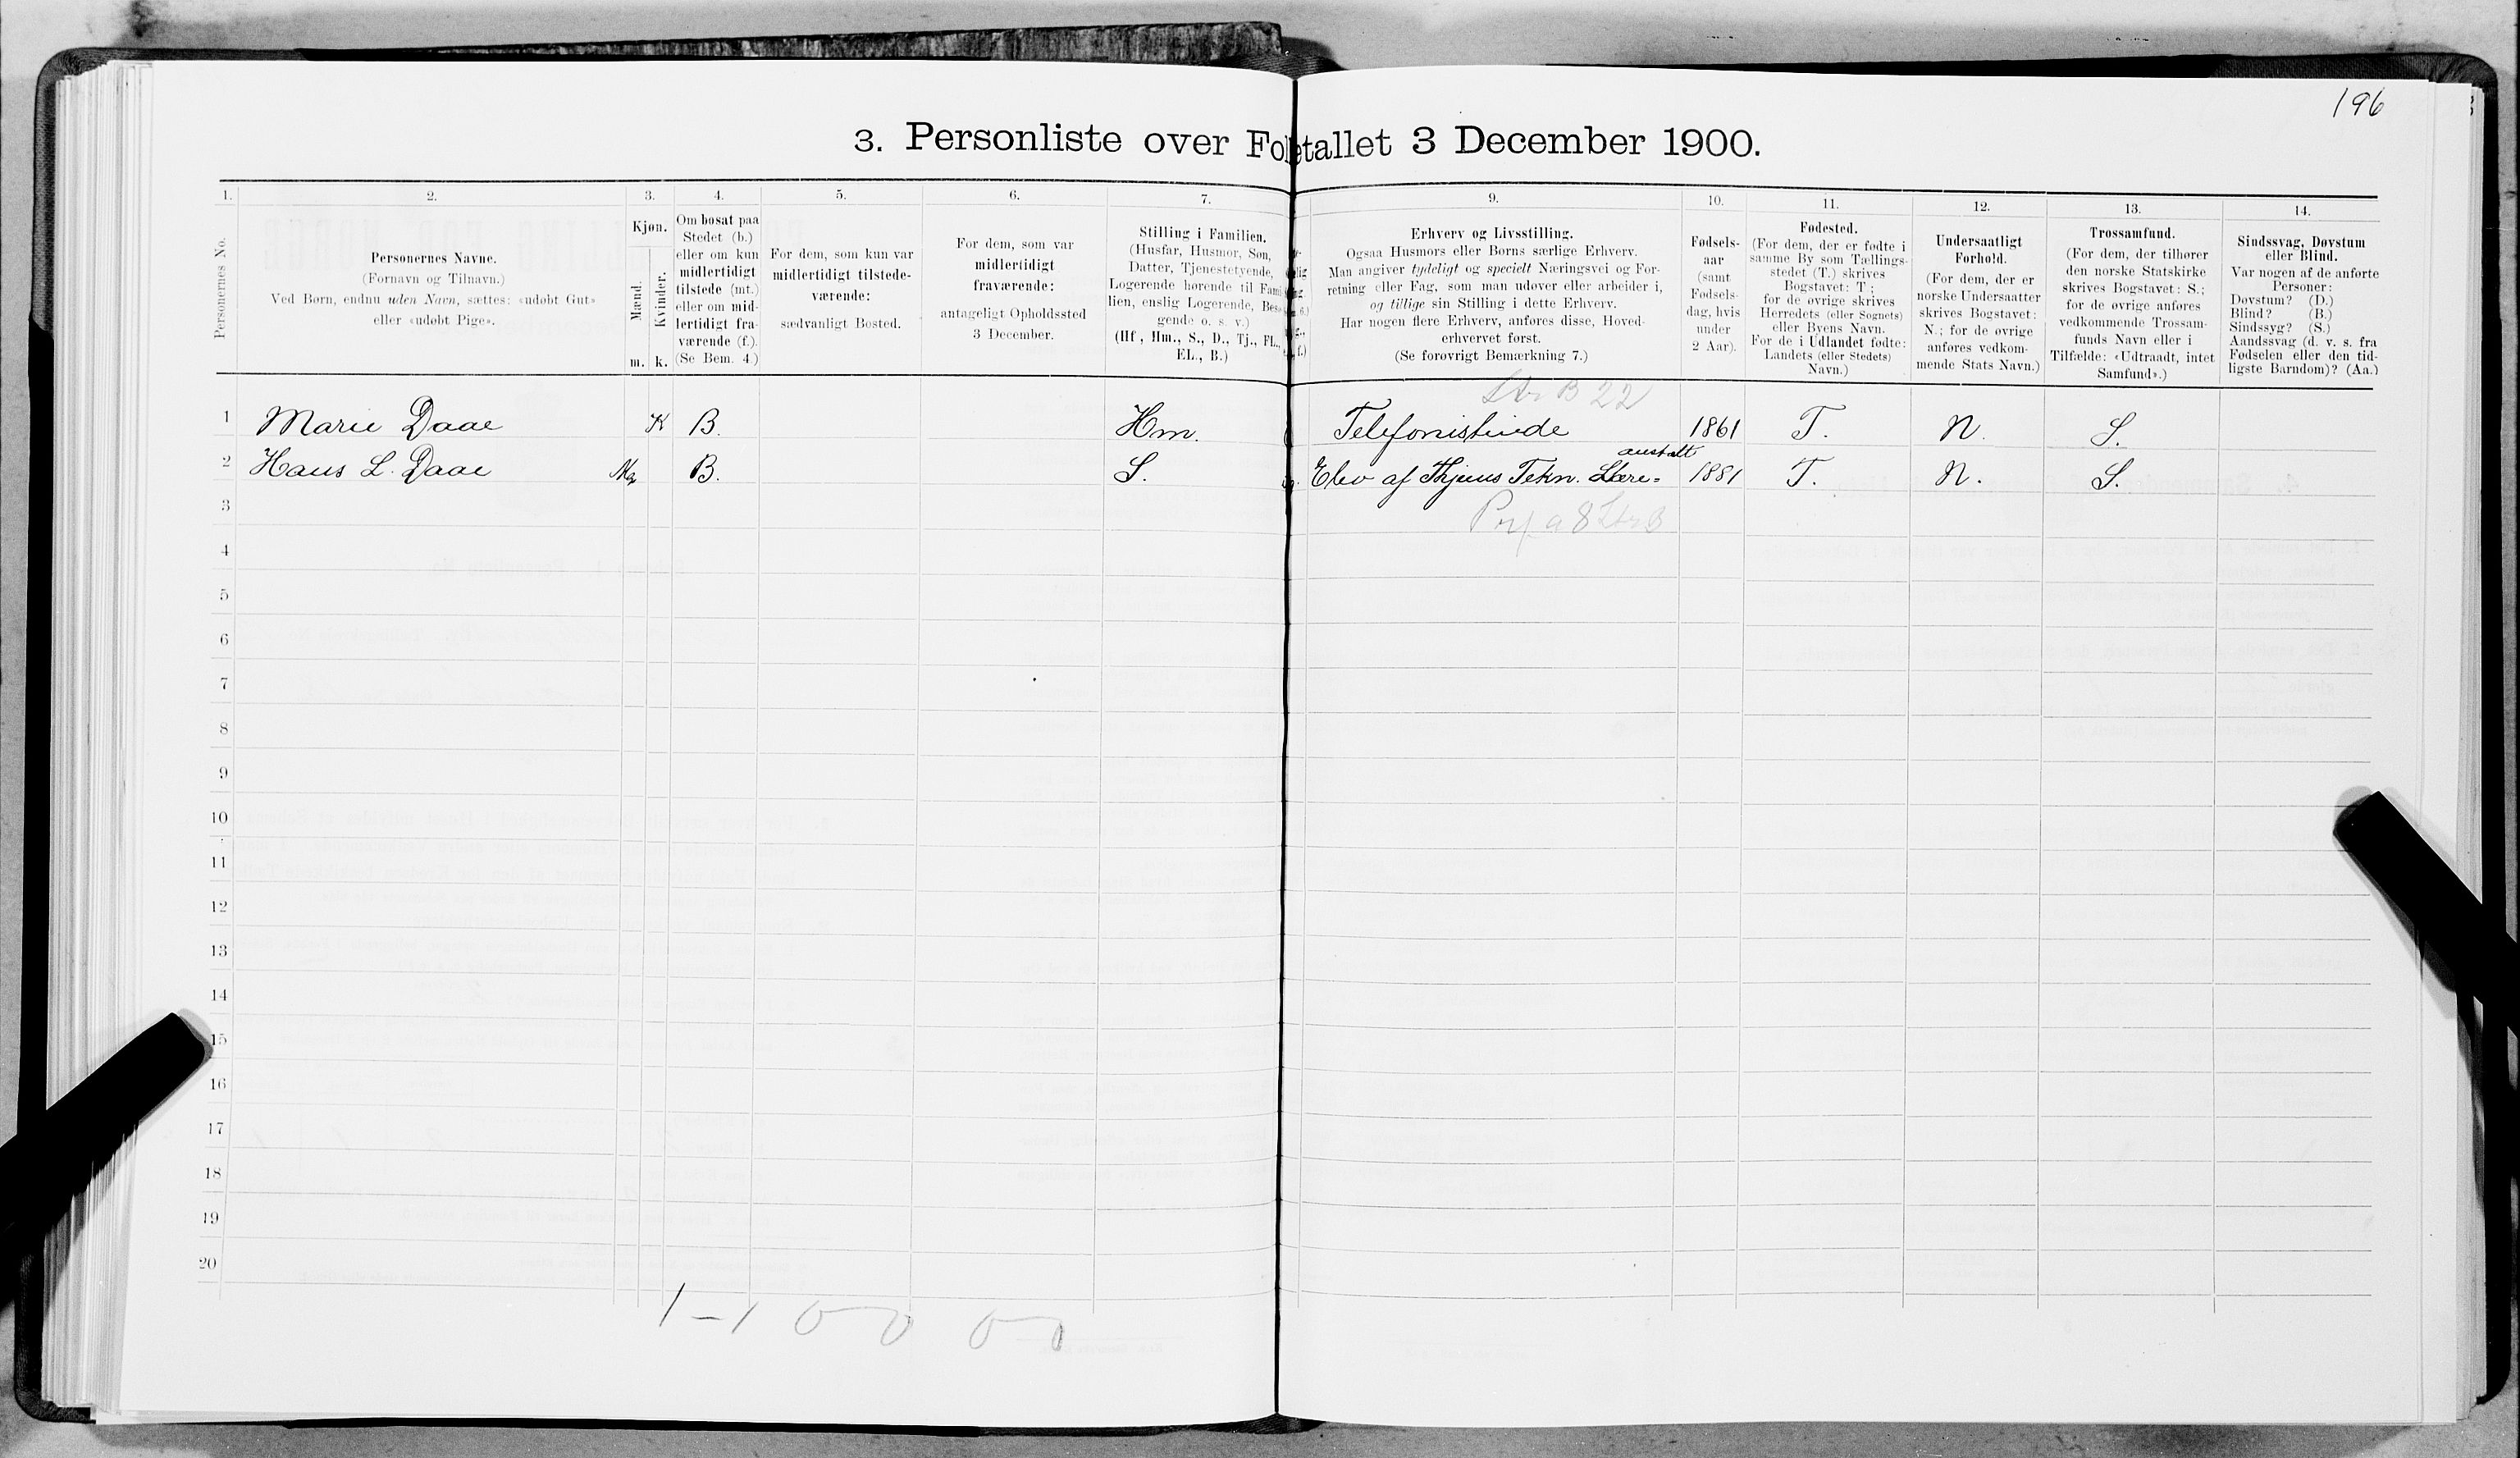 196
3. Personliste over Folketallet 3 December 1900.
1. 2. 3. 4. 5. 6. 7. 9. 10. 11. 12. 13. 14.
Personernes No.
Personernes Navne.
(Fornavn og Tilnavn.)
Ved Børn, endnu uden Navn, sættes: «udøbt Gut»
eller «udøbt Pige».
Kjøn.
Mænd.
Kvinder.
m. k.
Om bosat paa
Stedet (b.)
eller om kun
midlertidigt
tilstede (mt.)
eller om mid-
lertidigt fra-
værende (f.).
(Se Bem. 4.)
For dem, som kun var
midlertidigt tilstede-
værende:
sædvanligt Bosted.
For dem, som var
midlertidigt
fraværende:
antageligt Opholdssted
3 December.
Stilling i Familien.
(Husfar, Husmor, Søn,
Datter, Tjenestetyende,
Logerende hørende til Fami
lien, enslig Logerende, Besø
gende o. s. v.)
(Hf., Hm., S., D., Tj., FL.,
EL., B.)
Erhverv og Livsstilling.
Ogsaa Husmors eller Børns særlige Erhverv.
Man angiver tydeligt og specielt Næringsvei og For-
retning eller Fag, som man udøver eller arbeider i,
og tillige sin Stilling i dette Erhverv.
Har nogen flere Erhverv, anføres disse, Hoved-
erhvervet først.
(Se forøvrigt Bemærkning 7.)
Fødsels-
aar
(samt
Fødsels-
dag, hvis
under
2 Aar).
Fødested.
(For dem, der er fødte i
samme By som Tællings-
stedet (T.) skrives
Bogstavet: T;
for de øvrige skrives
Herredets (eller Sognets)
eller Byens Navn.
For de i Udlandet fødte:
Landets (eller Stedets)
Navn.)
Undersaatligt
Forhold.
(For dem, der er
norske Undersaatter
skrives Bogstavet:
N.; for de øvrige
anføres vedkom-
mende Stats Navn.)
Trossamfund.
(For dem, der tilhører
den norske Statskirke
skrives Bogstavet: S.;
for de øvrige anføres
vedkommende Trossam-
funds Navn eller i
Tilfælde: «Udtraadt, intet
Samfund».)
Sindssvag, Døvstum
eller Blind.
Var nogen af de anførte
Personer:
Døvstum? (D.)
Blind? (B.)
Sindssyg? (S.)
Aandssvag (d. v. s. fra
Fødselen eller den tid-
ligste Barndom)? (Aa.)
B 22
1 Marie Daae K B. Hm. Telefonistinde 1861 T. N. S.
anstalt
2 Hans L. Daae M B. S. Elev af Thjems Tekn. Lære= 1881 T. N. S.
3
4
5
6
7
8
9
10
11
12
13
14
15
16
17
18
19
20
1 - 1 0 0 0 0